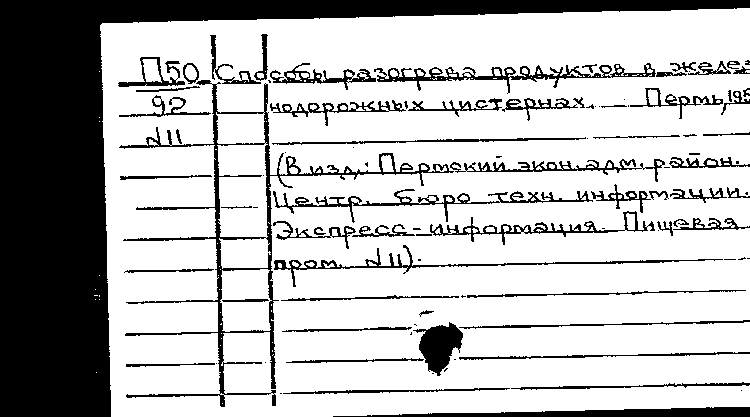 П50 Способы разогрева продуктов в желез
92 нодорожных цистернах. Пермь, 195
N11
(В изд.: Пермский экон. адм. район.
Центр. бюро техн. информации.
Экспресс-информация. Пищевая
пром. N11).